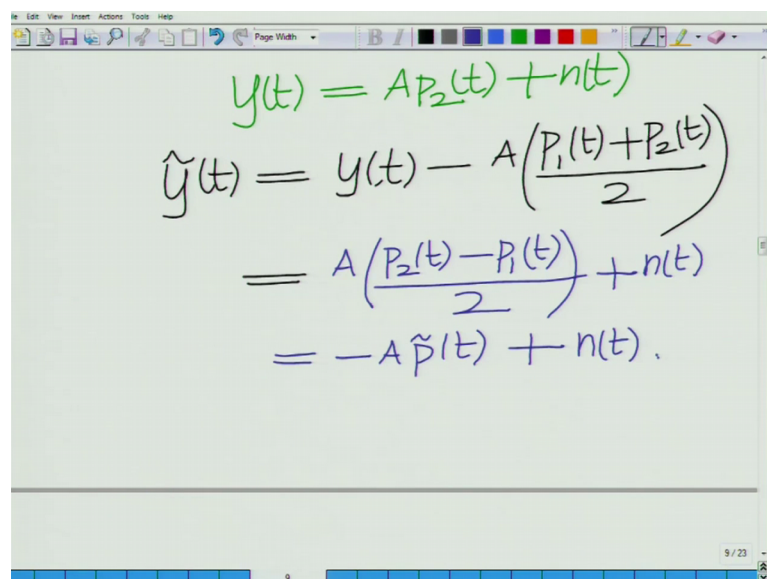 File Edit View Insert Actions Tools Help
Page Width B I
y(t) = Ap₂(t) + n(t)
ỹ(t) = y(t) − A(P₁(t) + P₂(t) / 2)
= A(P₂(t) − P₁(t) / 2) + n(t)
= −A p̃(t) + n(t).
9 / 23
9